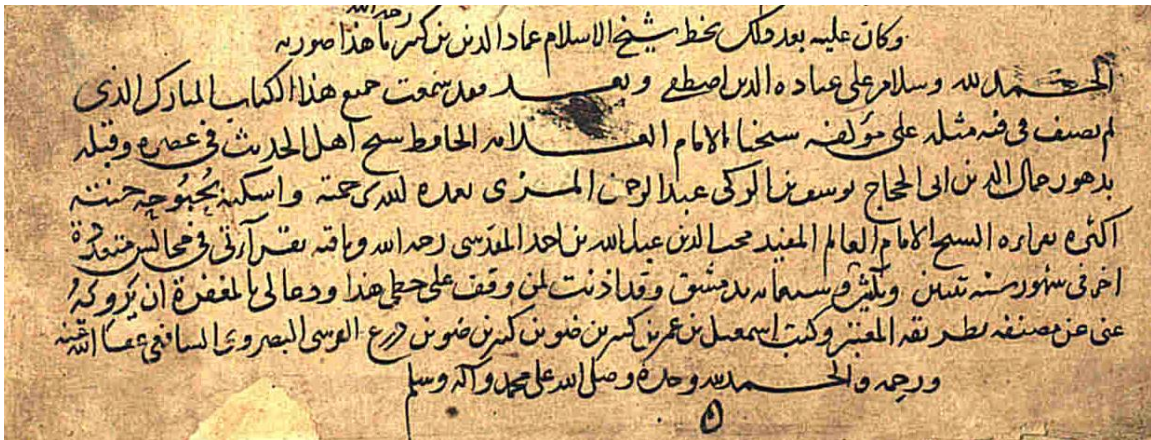 رحمه الله
وكان عليه بعد ذلك بخط شيخ الاسلام عماد الدين بن كثير ما هذا صورته
الحمد لله وسلام على عباده الذين اصطفى وبعد فقد سمعت جميع هذا الكتاب المبارك الذي
لم يصنف في فنه مثله على مؤلفه شيخنا الامام العلامة الحافظ شيخ اهل الحديث في عصره وقبله
بدهور جمال الدين ابي الحجاج يوسف بن الزكي عبد الرحمن المزي تغمده الله برحمته واسكنه بحبوحة جنته
اكثره بقراءة الشيخ الامام العالم المفيد محب الدين عبد الله بن احمد المقدسي رحمه الله وباقيه بقراءتي في مجالس متعددة
اخرها في شهور سنة وثلثين وسبعمائة بدمشق وقد اذنت لمن وقف على خطي هذا ودعا لي بالمغفرة ان يرويه
عني عن مصنفه بطريقه المعتبر وكتب اسمعيل بن عمر بن كثير بن ضو بن كثير بن ضو بن درع القرشي البصروي الشافعي عفا الله عنه
ورحمه والحمد لله وحده وصلى الله على محمد وآله وسلم